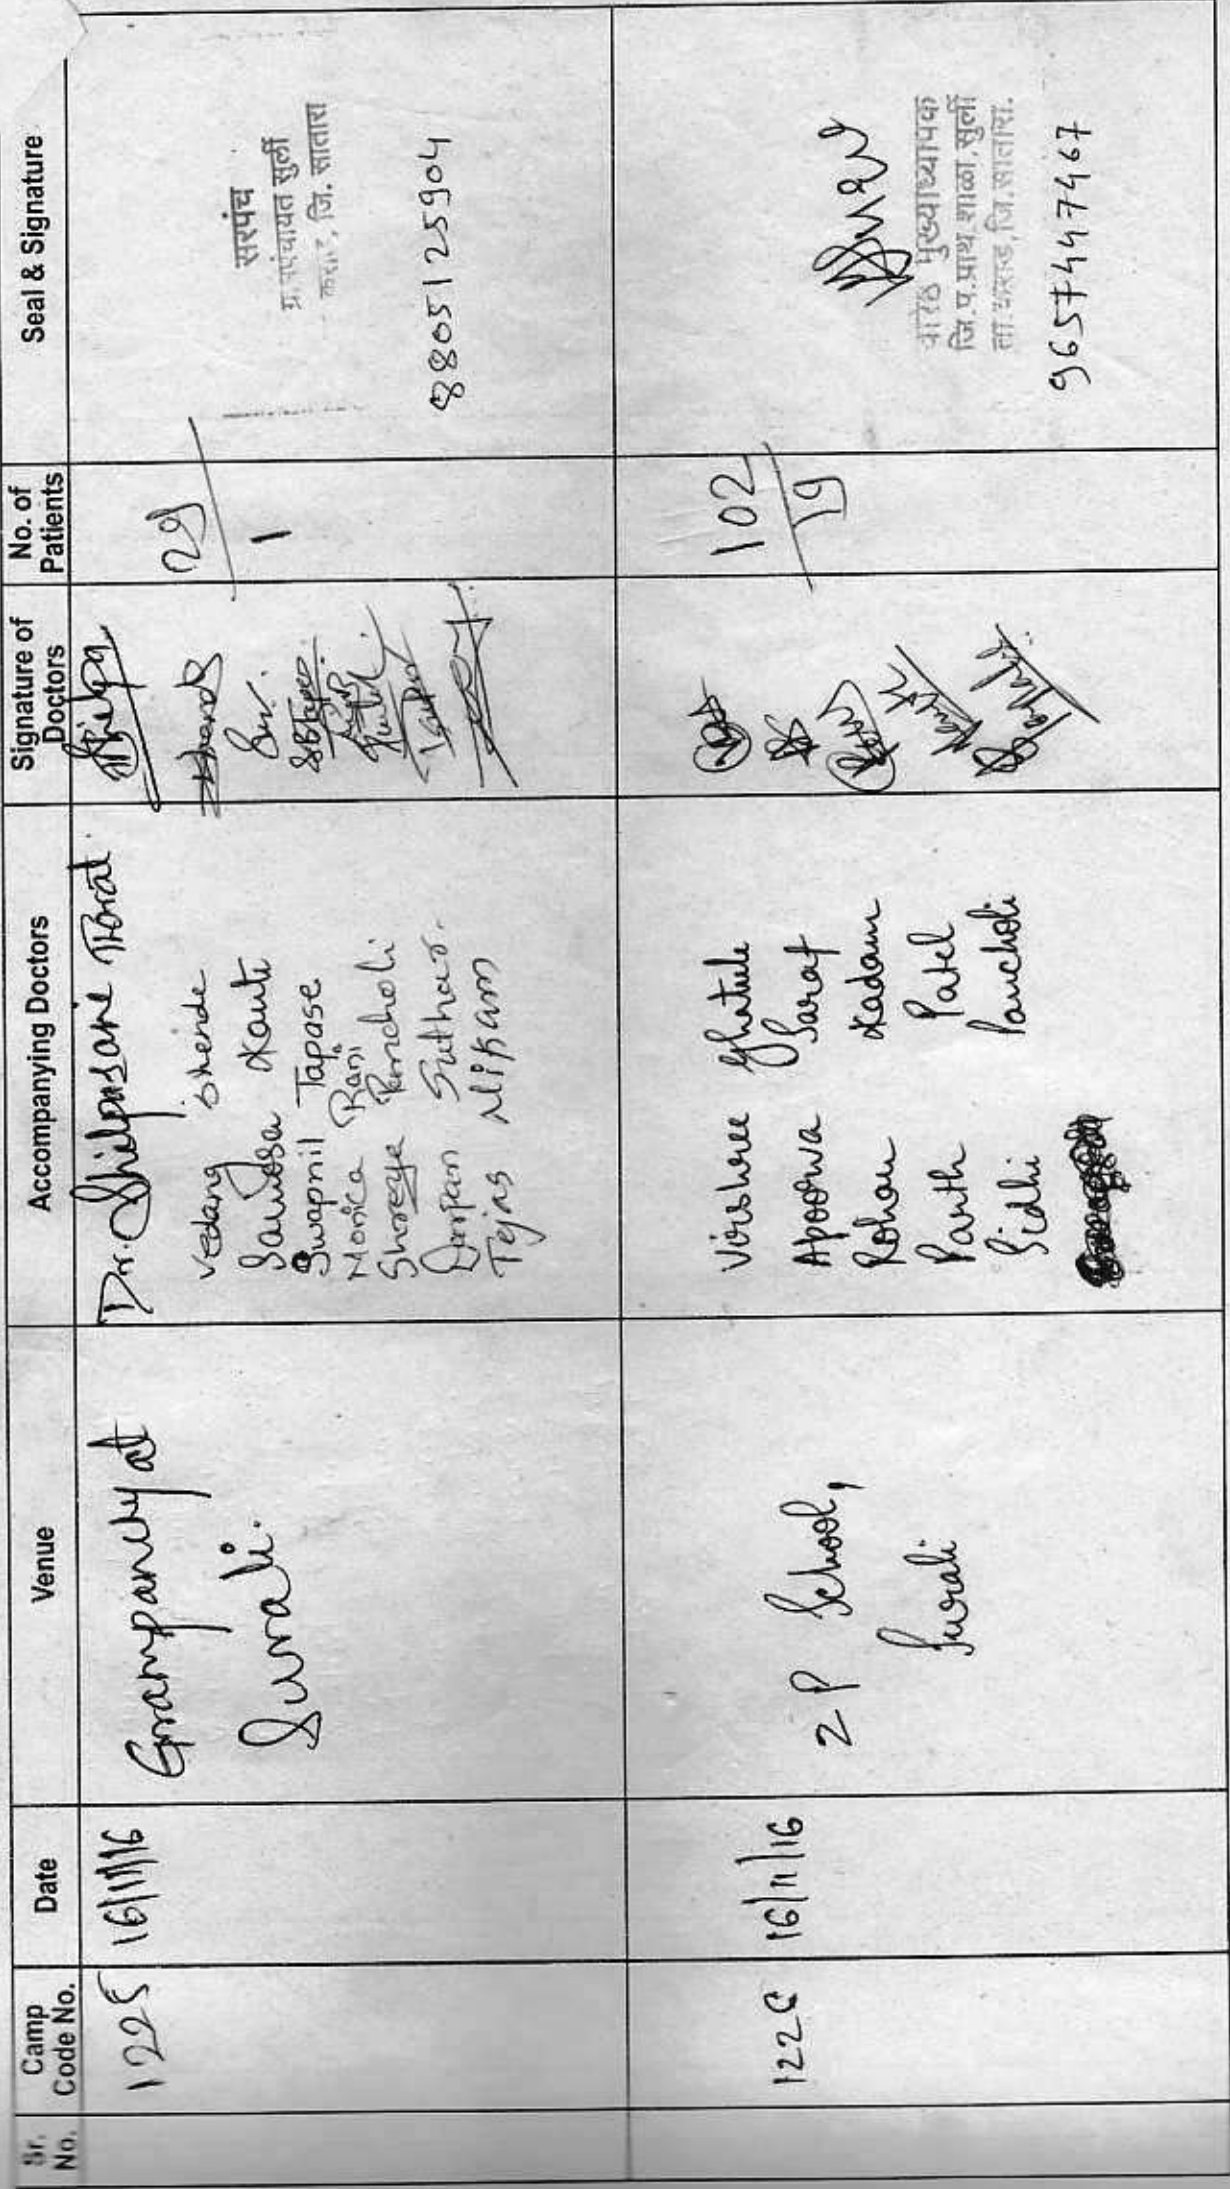 Sr. No.
Camp Code No.
Date
Venue
Accompanying Doctors
Signature of Doctors
No. of Patients
Seal & Signature
1225
16/11/16
Grampanchyat
Surali.
Dr. Shilpasane Thorat.
Vedang Shende
Swapnil Tapase
Monica Rani
Shreeya Pancholi
Suthar.
Tejas Nikam
29
1
सरपंच
ग्रा. पंचायत सुर्ली
जि. सातारा
8805125904
1226
16/11/16
ZP School,
Surali
Virshree Ghatule
Apoorva Saraf
Rohan Kadam
Parth Patel
Sidhi Pancholi
102
19
मुख्याध्यापक
जि. प. प्राथ. शाळा, सुर्ली
जि. सातारा.
9657447467